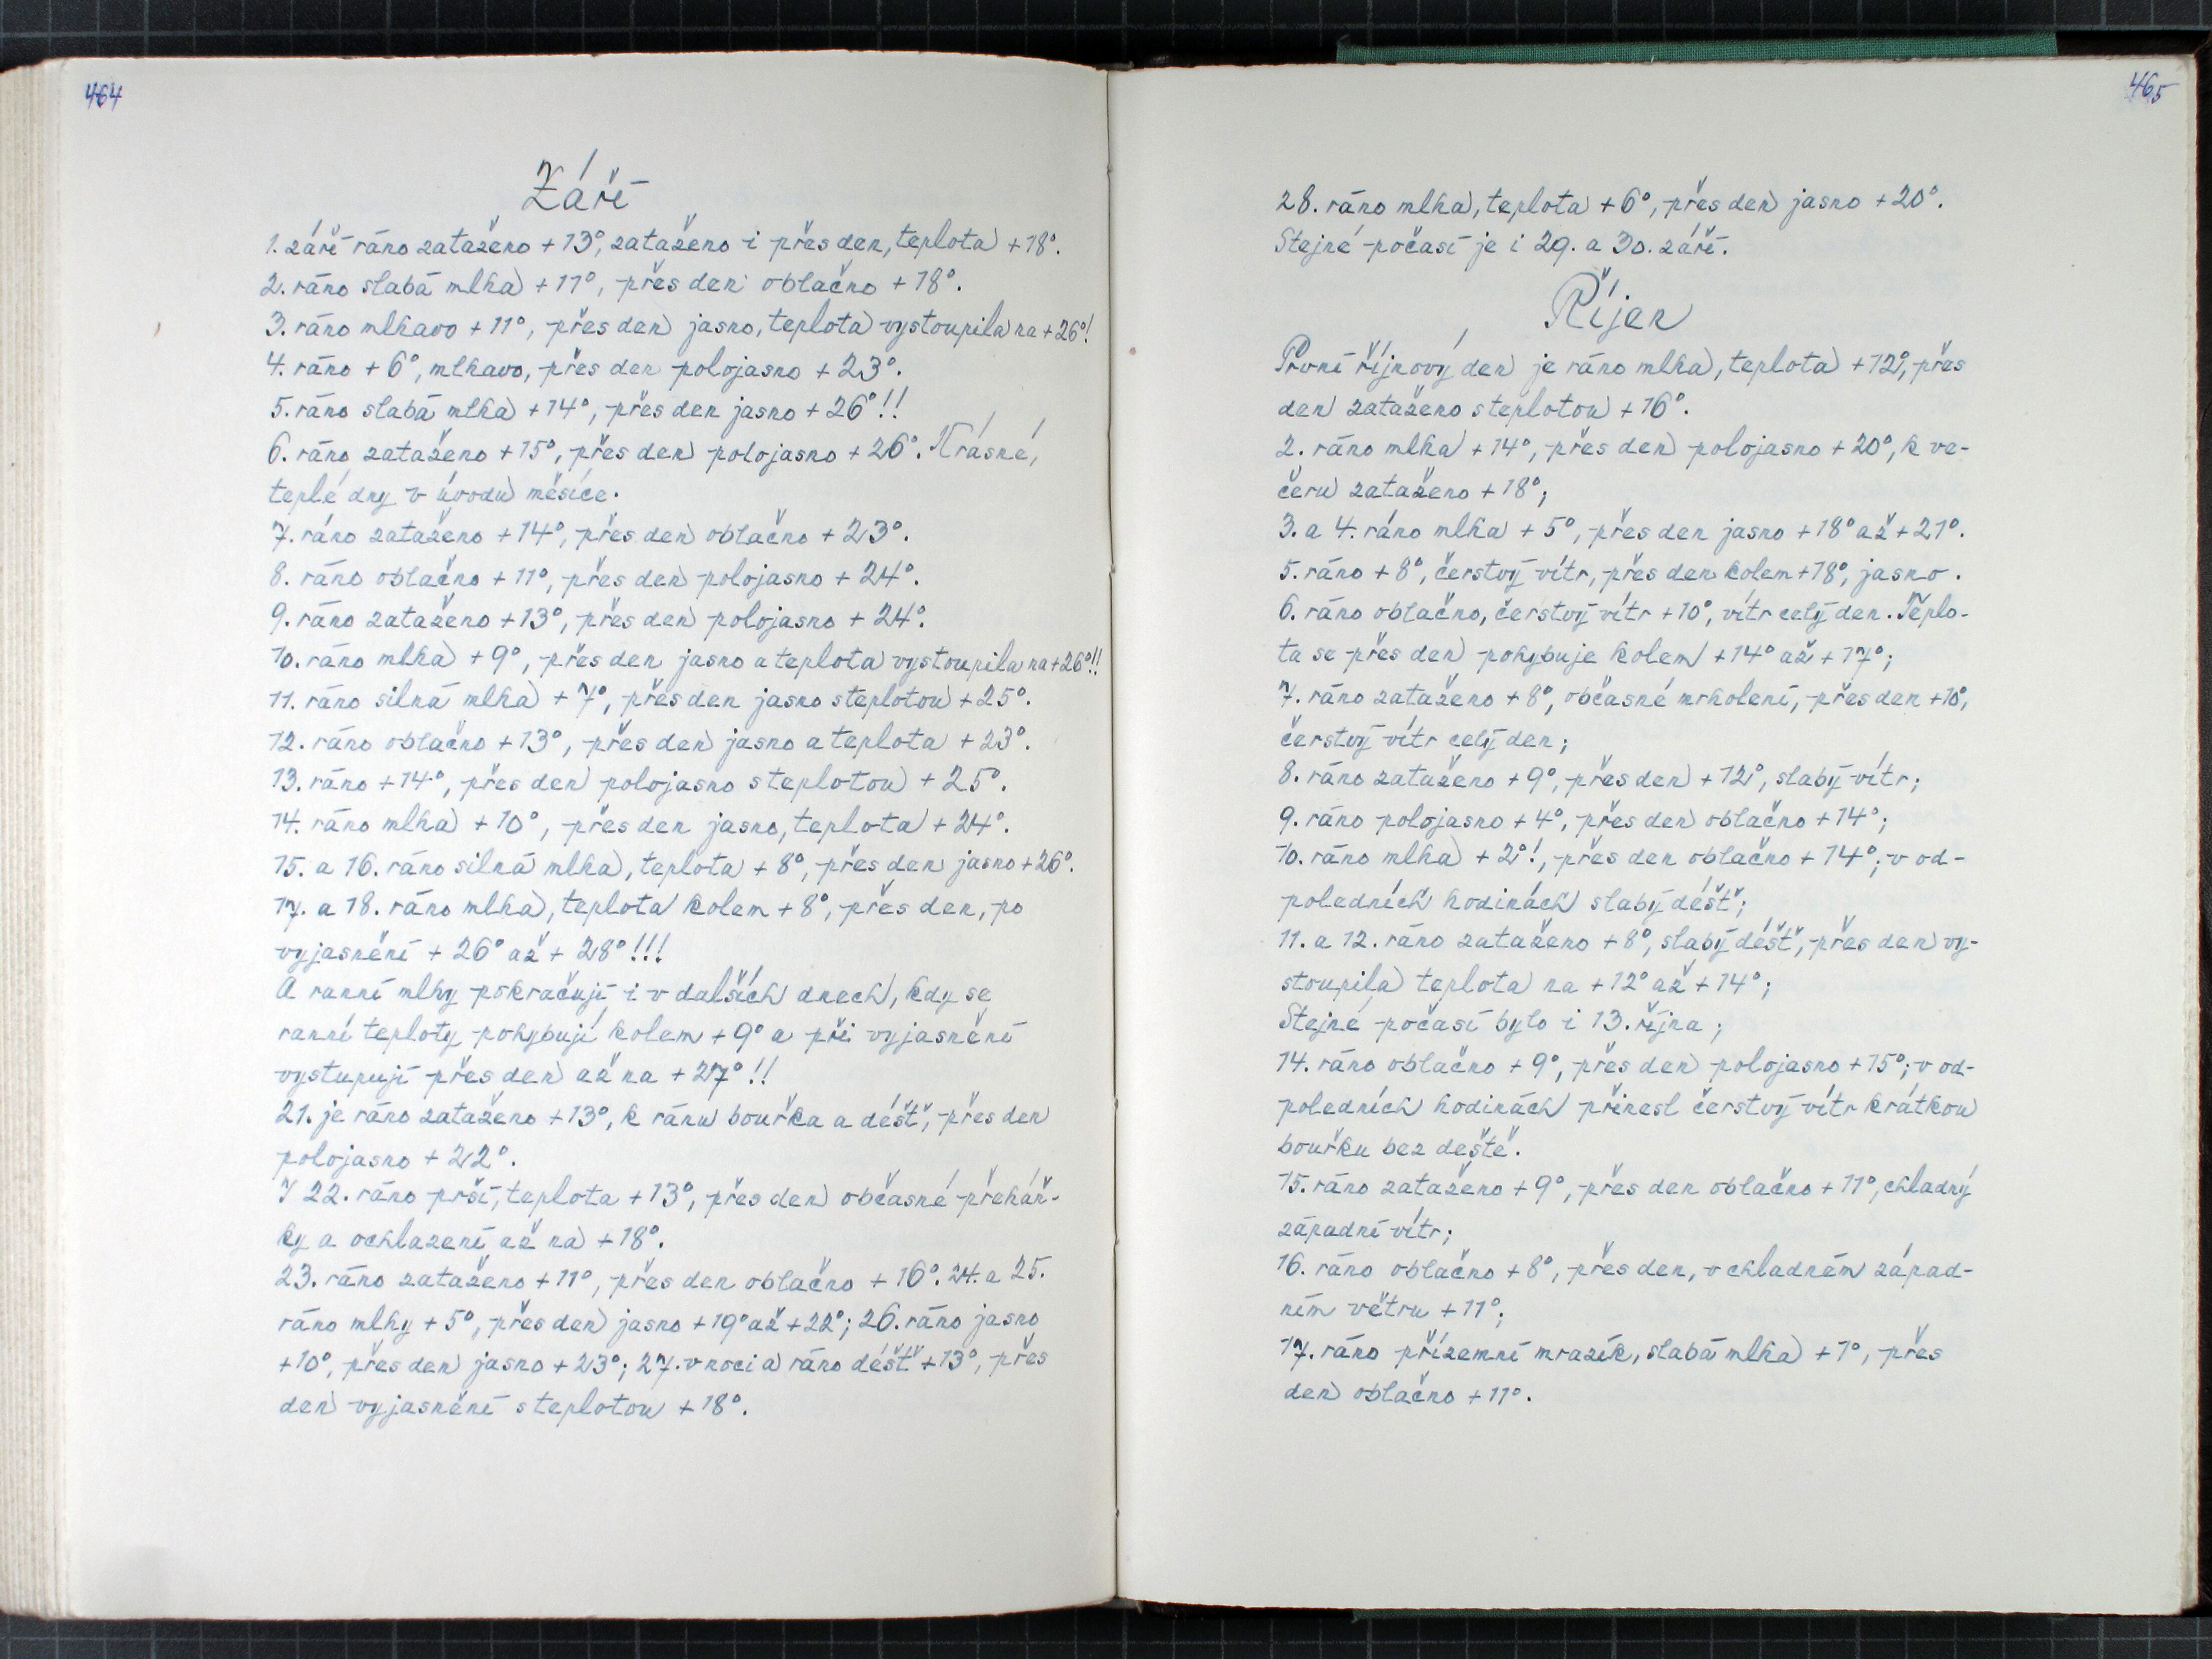 464
Září
1. září ráno zataženo +13°, zataženo i přes den, teplota +18°.
2. ráno slabá mlha +11°, přes den oblačno +18°.
3. ráno mlhavo +11°, přes den jasno, teplota vystoupila na +26°!
4. ráno +6°, mlhavo, přes den polojasno +23°.
5. ráno slabá mlha +14°, přes den jasno +26°!!
6. ráno zataženo +15°, přes den polojasno +26°. Krásné,
teplé dny v úvodu měsíce.
7. ráno zataženo +14°, přes den oblačno +23°.
8. ráno oblačno +11°, přes den polojasno +24°.
9. ráno zataženo +13°, přes den polojasno +24°.
10. ráno mlha +9°, přes den jasno a teplota vystoupila na +26°!!
11. ráno silná mlha +7°, přes den jasno s teplotou +25°.
12. ráno oblačno +13°, přes den jasno a teplota +23°.
13. ráno +14°, přes den polojasno s teplotou +25°.
14. ráno mlha +10°, přes den jasno, teplota +24°.
15. a 16. ráno silná mlha, teplota +8°, přes den jasno +26°.
17. a 18. ráno mlha, teplota kolem +8°, přes den, po
vyjasnění +26° až +28°!!!
A ranní mlhy pokračují i v dalších dnech, kdy se
ranní teploty pohybují kolem +9° a při vyjasnění
vystupují přes den až na +27°!!
21. je ráno zataženo +13°, k ránu bouřka a déšť, přes den
polojasno +22°.
I 22. ráno prší, teplota +13°, přes den občasné přeháň-
ky a ochlazení až na +18°.
23. ráno zataženo +11°, přes den oblačno +16°. 24. a 25.
ráno mlhy +5°, přes den jasno +19° až +22°; 26. ráno jasno
+10°, přes den jasno +23°; 27. v noci a ráno déšť +13°, přes
den vyjasnění s teplotou +18°.
465
28. ráno mlha, teplota +6°, přes den jasno +20°.
Stejné počasí je i 29. a 30. září.
Říjen
První říjnový den je ráno mlha, teplota +12°, přes
den zataženo s teplotou +16°.
2. ráno mlha +14°, přes den polojasno +20°, k ve-
čeru zataženo +18°;
3. a 4. ráno mlha +5°, přes den jasno +18° až +21°.
5. ráno +8°, čerstvý vítr, přes den kolem +18°, jasno.
6. ráno oblačno, čerstvý vítr +10°, vítr celý den. Teplo-
ta se přes den pohybuje kolem +14° až +17°;
7. ráno zataženo +8°, občasné mrholení, přes den +10°,
čerstvý vítr celý den;
8. ráno zataženo +9°, přes den +12°, slabý vítr;
9. ráno polojasno +4°, přes den oblačno +14°;
10. ráno mlha +2°!, přes den oblačno +14°; v od-
poledních hodinách slabý déšť;
11. a 12. ráno zataženo +8°, slabý déšť, přes den vy-
stoupila teplota na +12° až +14°;
Stejné počasí bylo i 13. října;
14. ráno oblačno +9°, přes den polojasno +15°; v od-
poledních hodinách přinesl čerstvý vítr krátkou
bouřku bez deště.
15. ráno zataženo +9°, přes den oblačno +11°, chladný
západní vítr;
16. ráno oblačno +8°, přes den, v chladném západ-
ním větru +11°;
17. ráno přízemní mrazík, slabá mlha +1°, přes
den oblačno +11°.